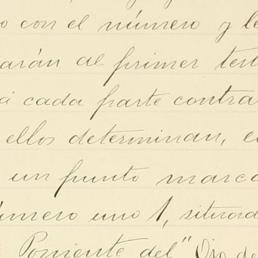 o con el número y le
arán al primer tes
a cada parte contra
ellos determinan, e
un punto marca
úmero uno 1, situad
Poniente del "Oro de